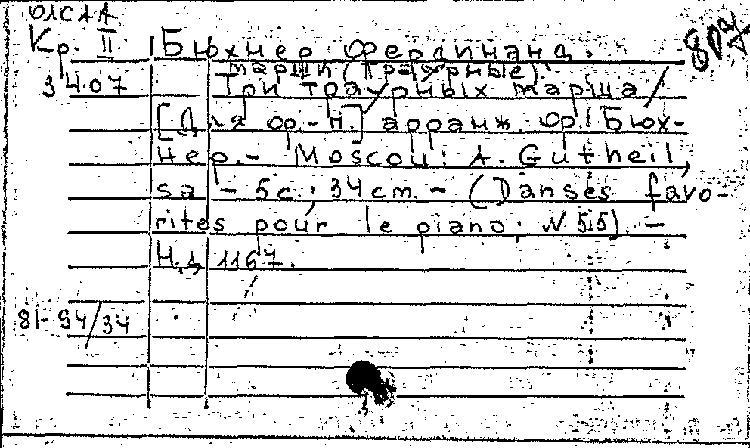 ОЛСАА
Кр. II Бюхнер Фердинанд.
Марши (траурные).
34.07 Три траурных марша/
[Для ф.-п.] аранж. Ф. Бюх-
нер. - Moscou: A. Gutheil,
sa - 5с.; 34 cm. - (Danses favo-
rites pour le piano; N 55) -
Н.д. 1167.
81-94/34